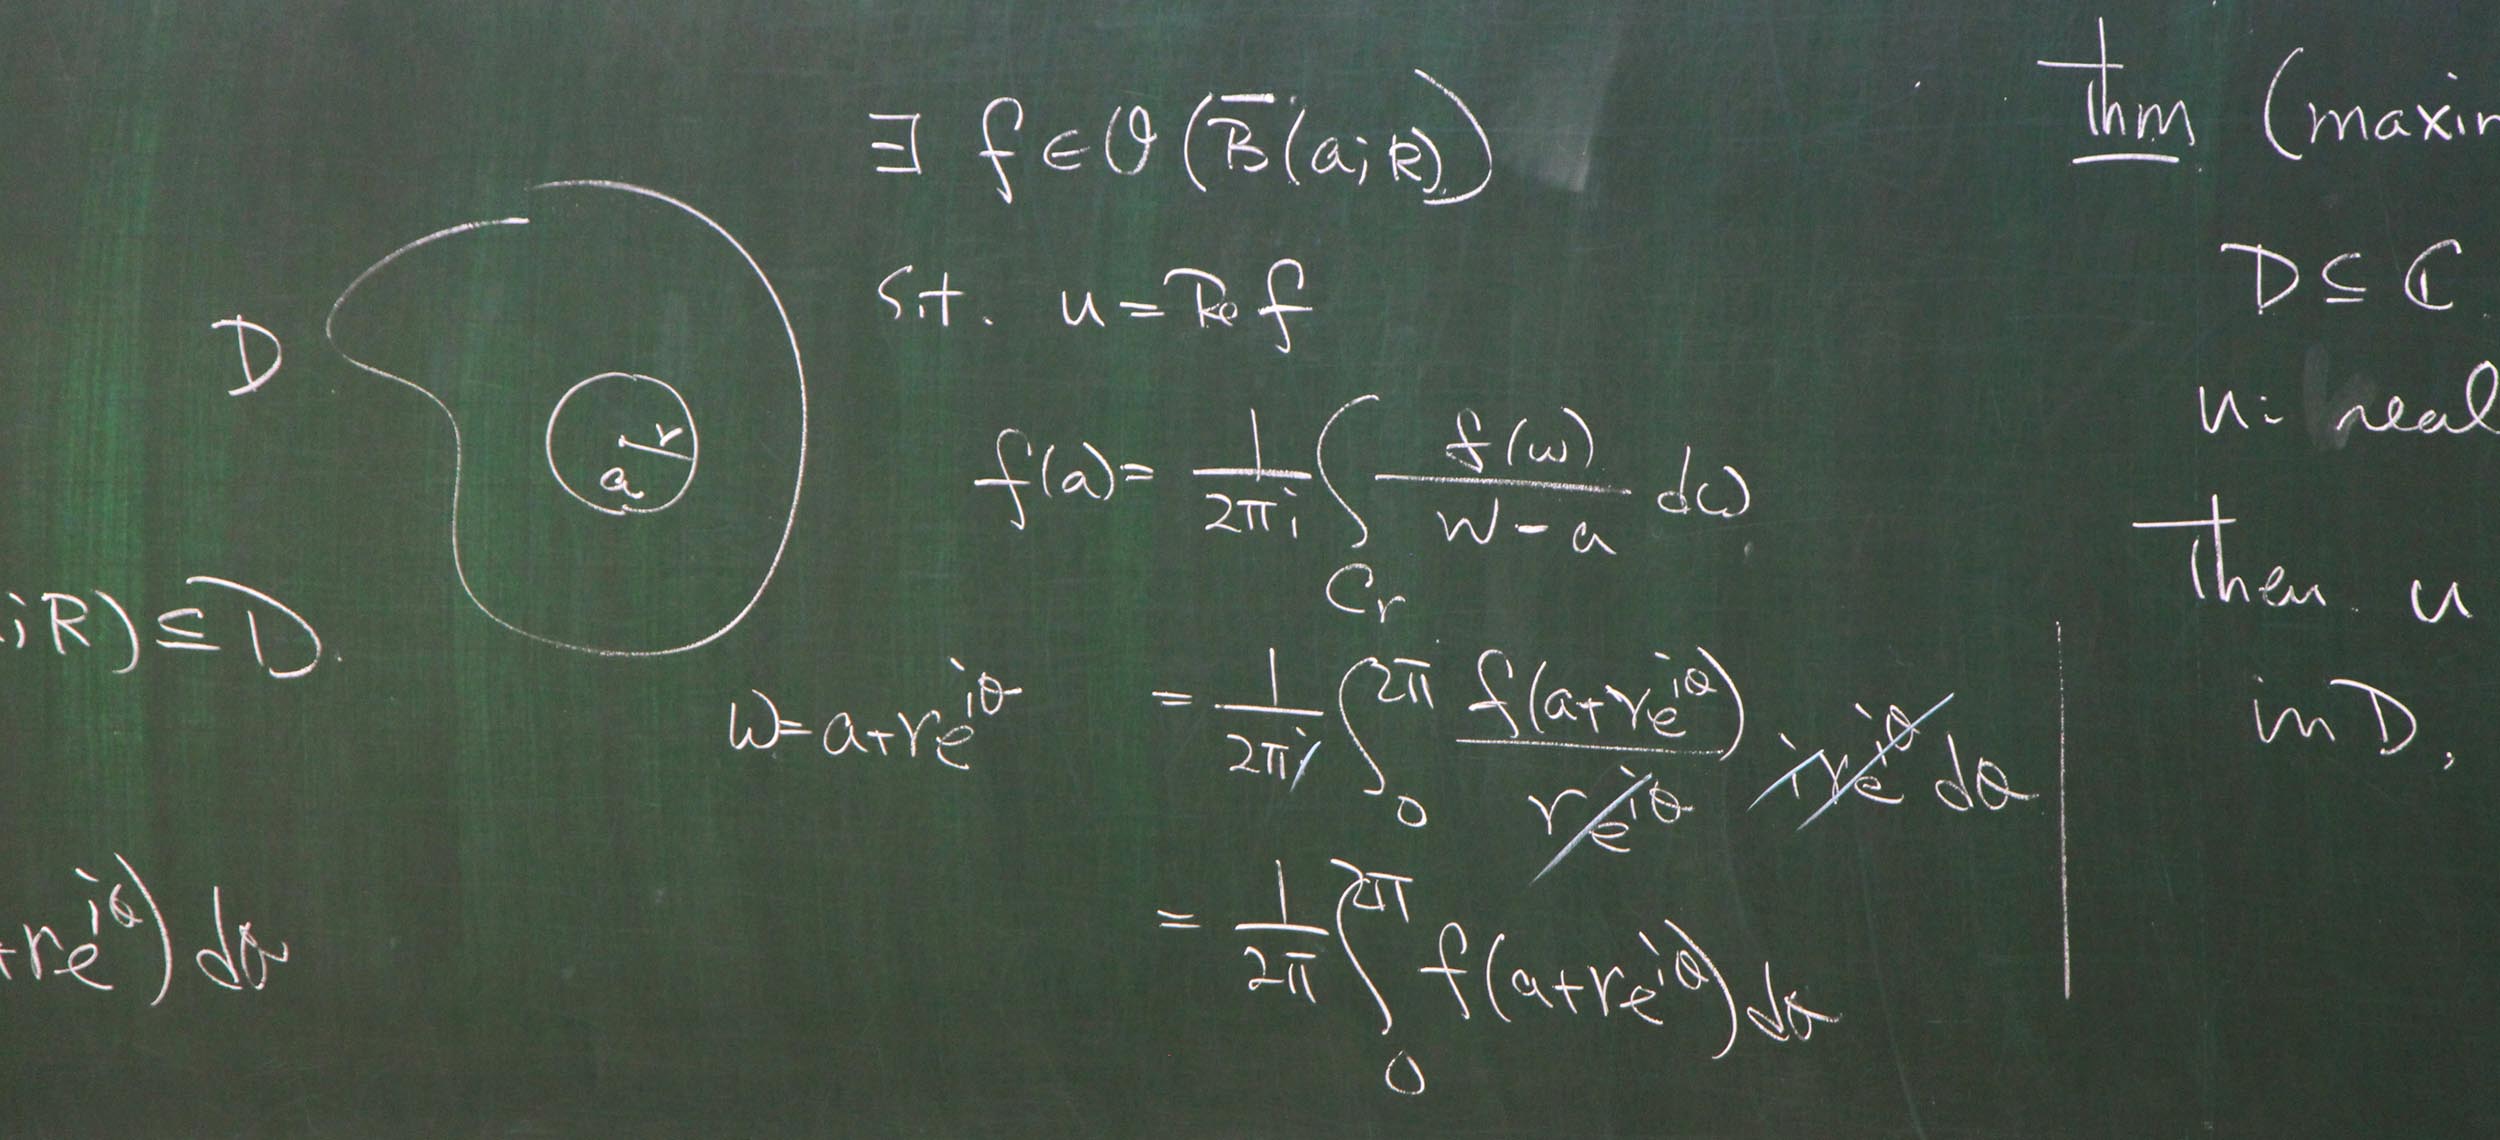 ; R) ⊆ D.
+re^{iθ}) dθ
D
a
r
∃ f ∈ O(B̅(a;R))
s.t. u = Re f
f(a) = \frac{1}{2πi} ∫_{C_r} \frac{f(w)}{w-a} dw
w = a+re^{iθ}
= \frac{1}{2πi} ∫_0^{2π} \frac{f(a+re^{iθ})}{re^{iθ}} ire^{iθ} dθ
= \frac{1}{2π} ∫_0^{2π} f(a+re^{iθ}) dθ
Thm (maxi
D ⊆ ℂ
u: real
Then u
in D,